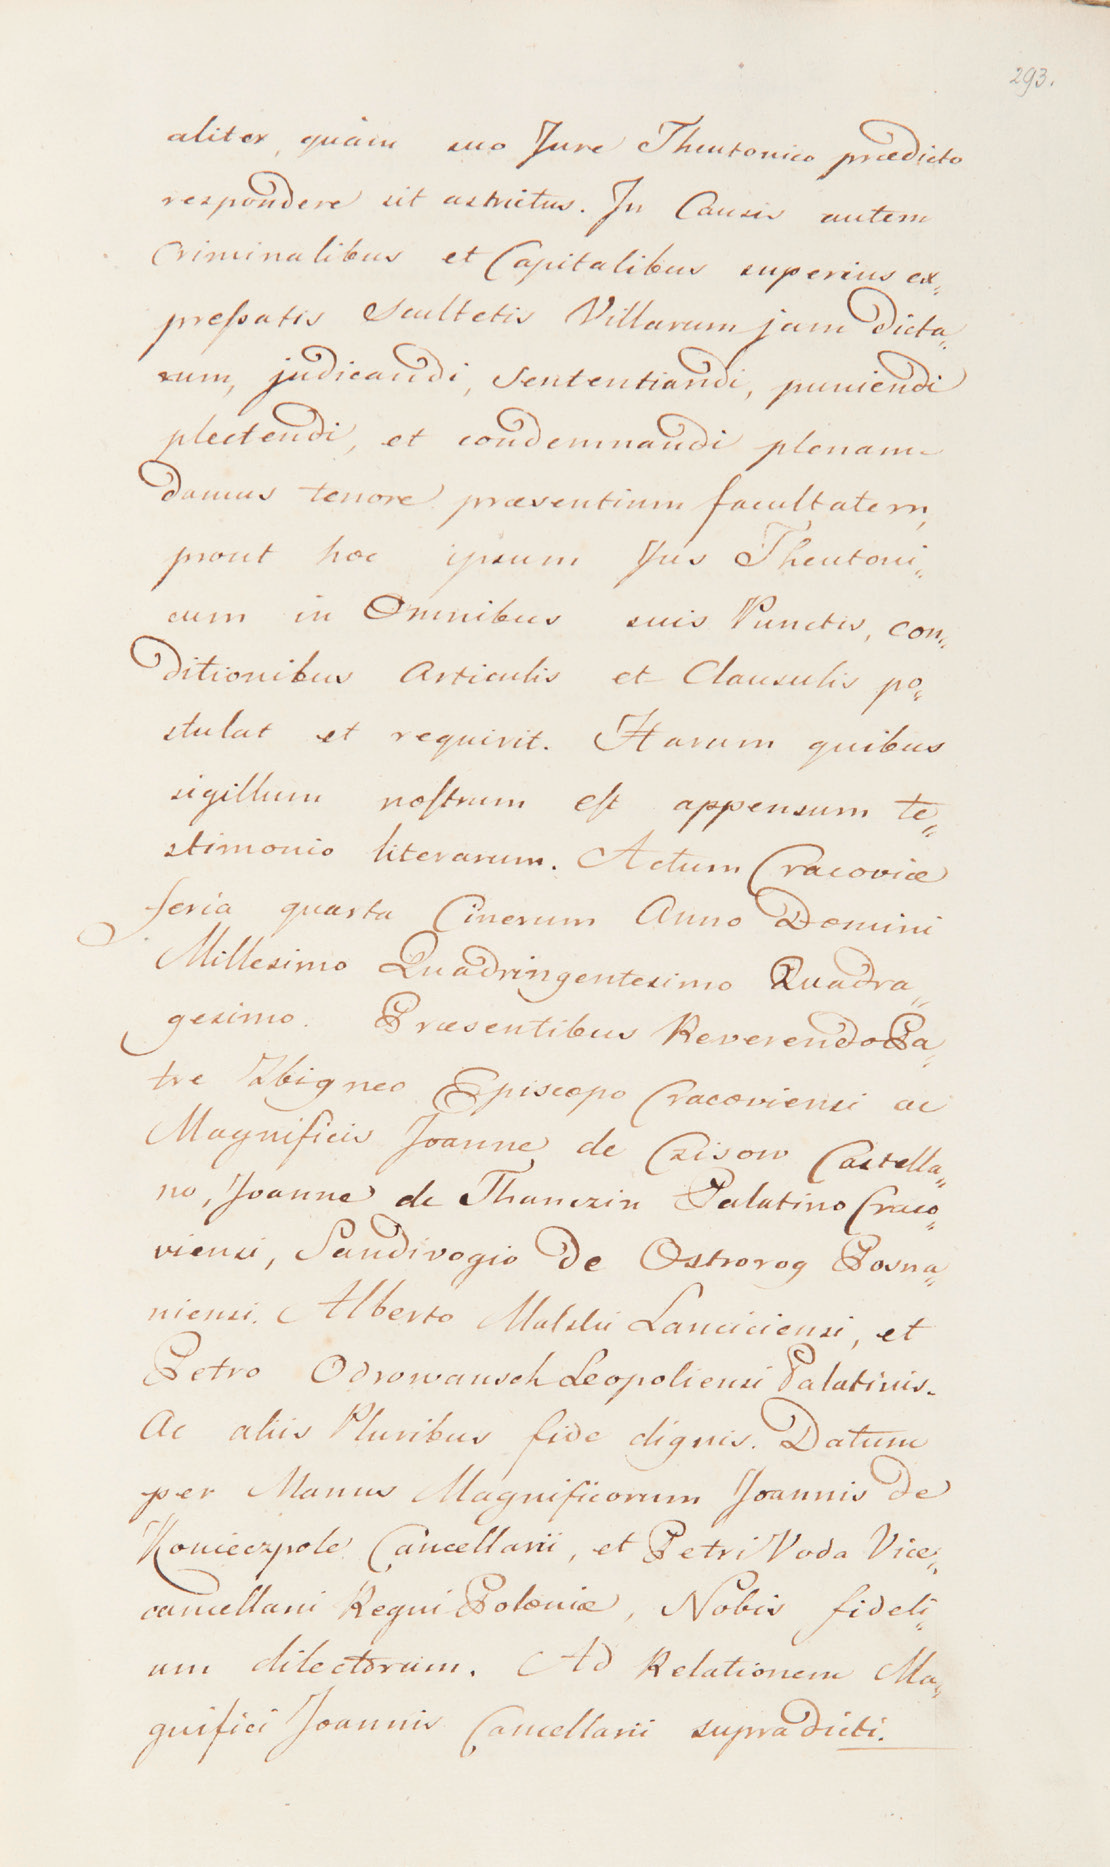 293.
aliter, quàm suo Jure Theutonico prædicto
respondere sit astrictus. In Causis autem
Criminalibus et Capitalibus superius ex„
preſsatis Scultetis Villarum jam dicta„
rum, judicandi, Sententiandi, puniendi
plectendi, et condemnandi plenam
damus tenore præsentium facultatem,
prout hoc ipsum Jus Theutoni„
cum in Omnibus suis Punctis, con„
ditionibus Articulis et Clausulis po„
stulat et requirit. Harum quibus
sigillum noſtrum eſt appensum te„
stimonio literarum. Actum Cracoviæ
feria quarta Cinerum Anno Domini
Millesimo Quadringentesimo Quadra„
gesimo. Præsentibus Reverendo Pa„
tre Zbigneo Episcopo Cracoviensi ac
Magnificis Joanne de Czisow Castella„
no, Joanne de Thanczin Palatino Craco„
viensi, Sandivogio de Ostrorog Posna„
niensi. Alberto Malski Lanciciensi, et
Petro Odrowansch Leopoliensi Palatinis.
Ac aliis Pluribus fide dignis. Datum
per Manus Magnificorum Joannis de
Konieczpole Cancellarii, et Petri Voda Vice„
cancellarii Regni Poloniæ, Nobis fideli„
um dilectorum. Ad Relationem Ma„
gnifici Joannis Cancellarii supradicti.